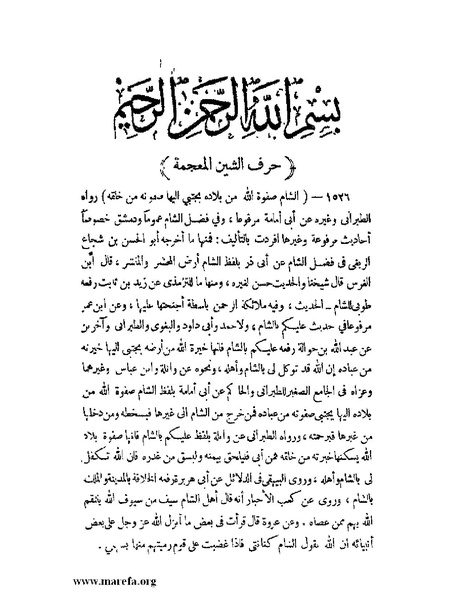 بسم الله الرحمن الرحيم
﴿ حرف الشين المعجمة ﴾
١٥٢٦ — ( الشام صفوة الله من بلاده يجتبي اليها صفوته من خلقه ) رواه
الطبراني وغيره عن أبي أمامة مرفوعا ، وفي فضل الشام عموما ودمشق خصوصا
أحاديث مرفوعة وغيرها افردت بالتأليف : فمنها ما أخرجه أبو الحسن بن شجاع
الربعي في فضل الشام عن أبي ذر بلفظ الشام أرض المحشر والمنشر ، قال ابن
الغرس قال شيخنا والحديث حسن لغيره ، ومنها ما للترمذي عن زيد بن ثابت رفعه
طوبى للشام ــ الحديث ، وفيه ملائكة الرحمن باسطة أجنحتها عليها ، وعن ابن عمر
مرفوعا في حديث عليكم بالشام ، ولاحمد وأبي داود والبغوي والطبراني وآخرين
عن عبد الله بن حوالة رفعه عليكم بالشام فانها خيرة الله من أرضه يجتبي اليها خيرته
من عباده إن الله قد توكل لي بالشام وأهله ، ونحوه عن واثلة وابن عباس وغيرهما
وعزاه في الجامع الصغير للطبراني والحاكم عن أبي أمامة بلفظ الشام صفوة الله من
بلاده اليها يجتبي صفوته من عباده فمن خرج من الشام الى غيرها فبسخطه ومن دخلها
من غيرها فبرحمته ، ورواه الطبراني عن واثلة بلفظ عليكم بالشام فانها صفوة بلاد
الله يسكنها خيرته من خلقه فمن أبى فليلحق بيمنه وليسق من غدره فان الله تكفل
لي بالشام وأهله ، وروى البيهقي في الدلائل عن أبي هريرة رفعه الخلافة بالمدينة والملك
بالشام ، وروى عن كعب الأحبار أنه قال أهل الشام سيف من سيوف الله ينتقم
الله بهم ممن عصاه . وعن عروة قال قرأت في بعض ما أنزل الله عز وجل على بعض
أنبيائه ان الله يقول الشام كنانتي فاذا غضبت على قوم رميتهم منها بسهم .
www.marefa.org